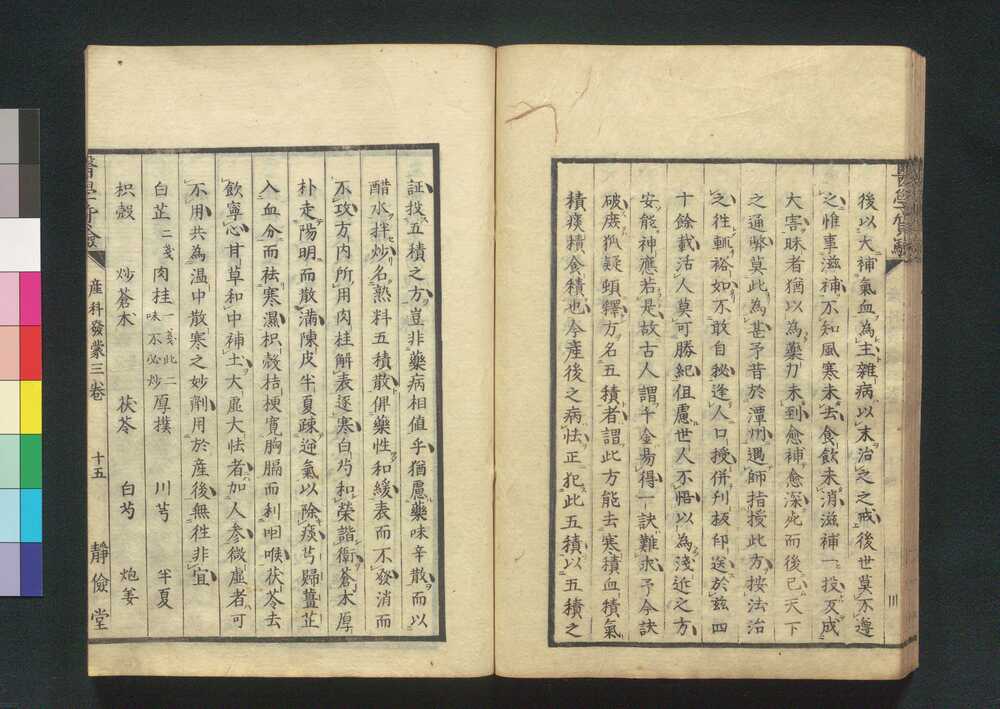 後以大補氣血為主雜病以末治之之戒後世莫不遵
之惟專滋補不知風寒未去食飲未消滋補一投反成
大害昧者猶以為藥力未到愈補愈深死而後已天下
之通弊莫此為甚予昔於潭州遇師指授此方按法治
之徃輒裕如不敢自秘逢人口授併刋板印送於兹四
十餘載活人莫可勝紀但慮世人不悟以為淺近之方
安能神應若是故古人謂千金易得一訣難求予今訣
破庶狐疑頓釋方名五積者謂此方能去寒積血積氣
積痰積食積也今產後之病怯正犯此五積以五積之
証投五積之方豈非藥病相值乎猶慮藥味辛散而以
醋水拌炒名熟料五積散俱藥性和緩表而不發消而
不攻方内所用肉桂解表逐寒白芍和榮諧衛蒼朮厚
朴走陽明而散滿陳皮半夏疎逆氣以除痰芎歸薑芷
入血分而祛寒濕枳殻桔梗寛胸膈而利咽喉茯苓去
飲寧心甘草和中補土大虛大怯者加人参微虛者可
不用共為温中散寒之妙劑用於産後無徃非宜
白芷二戔 肉桂一戔此二味不必炒 厚樸 川芎 半夏
枳殻 炒蒼朮 茯苓 白芍 炮姜
産科發蒙三卷 十五 靜儉堂